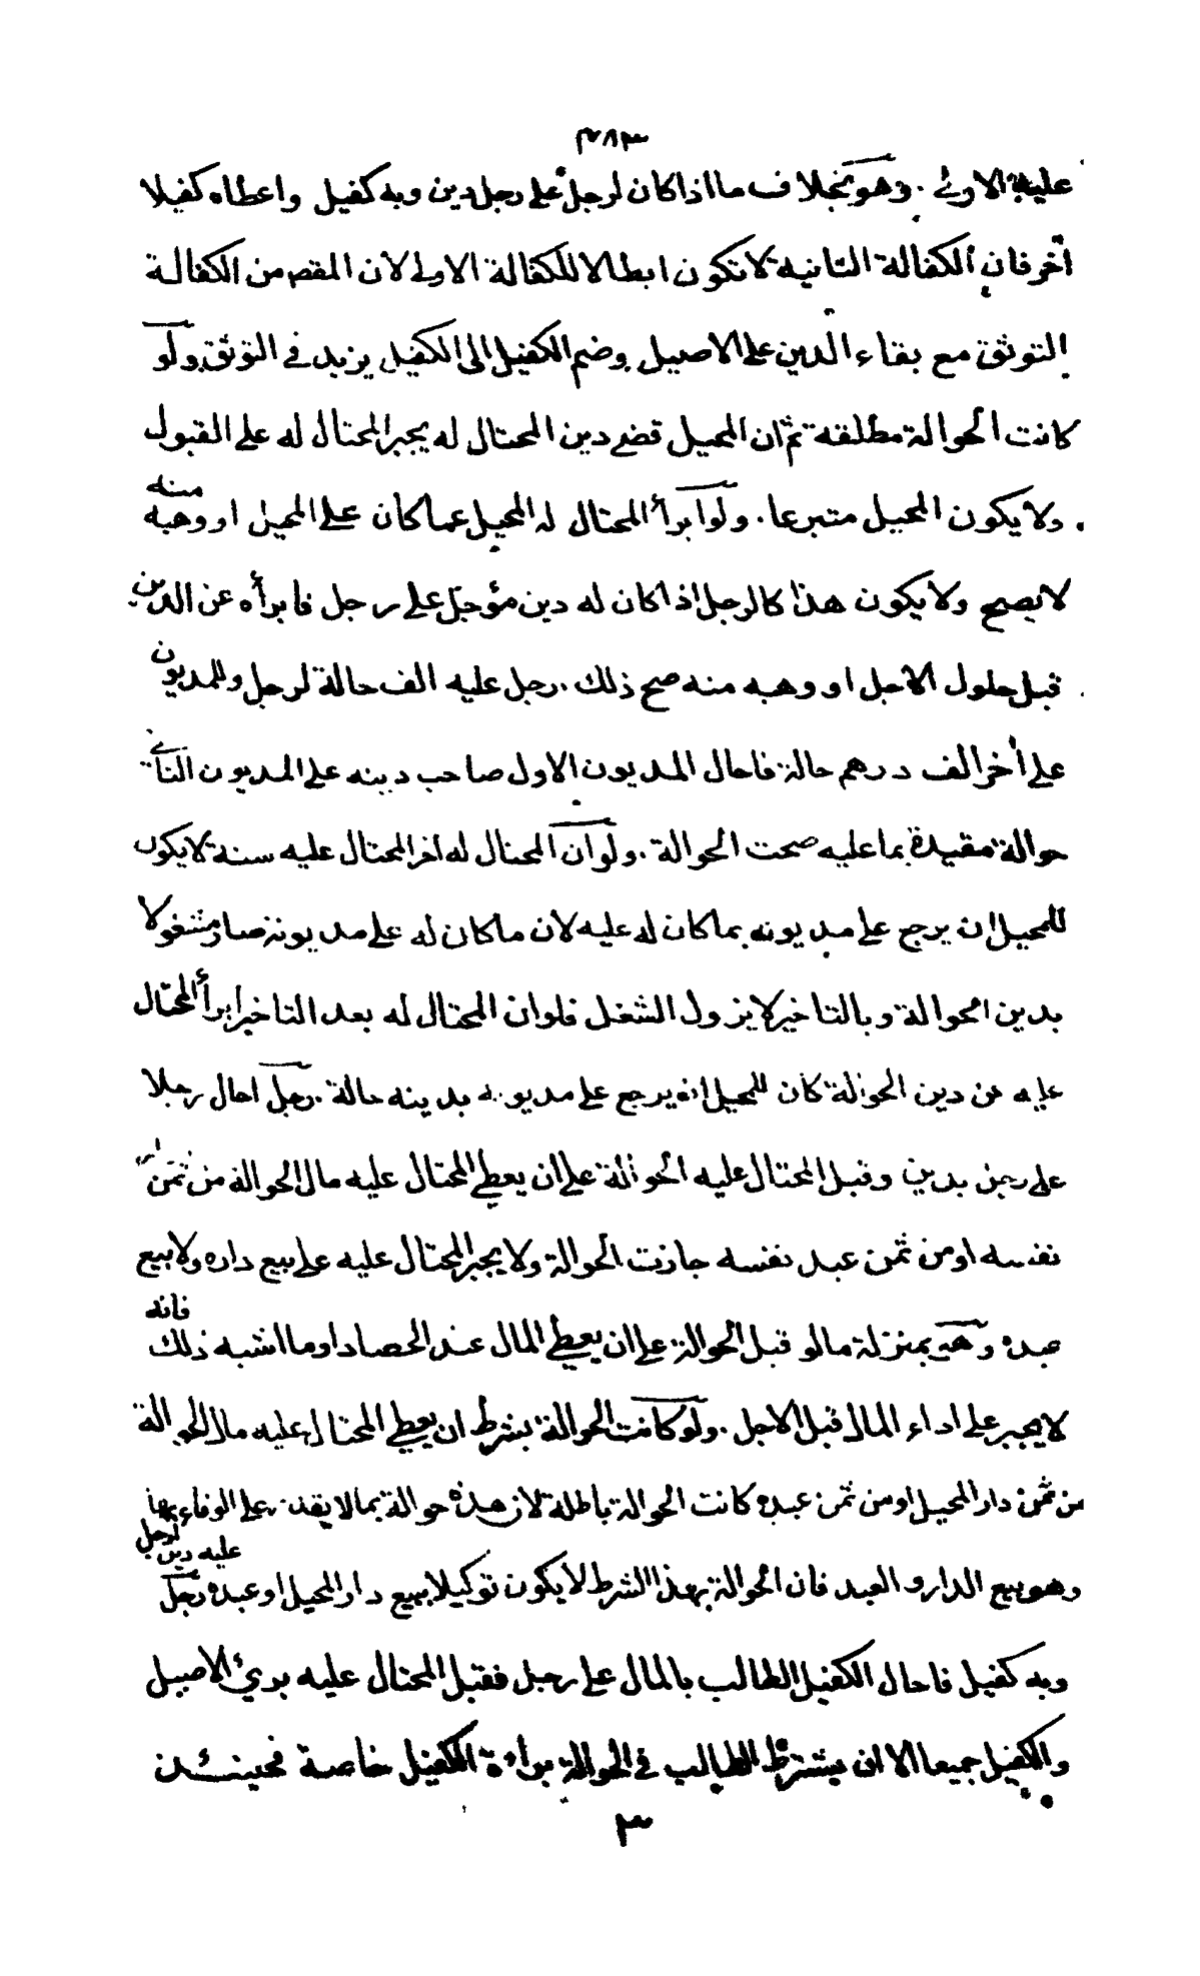 ٣٨٣
عليه الاولى . وهو بخلاف ما اذا كان لرجل على رجل دين وبه كفيل واعطاه كفيلا
آخر فان الكفالة الثانية لا تكون ابطالا للكفالة الاولى لان المقص من الكفالة
التوثق مع بقاء الدين على الاصيل وضم الكفيل الى الكفيل يزيد في التوثق ولو
كانت الحوالة مطلقة ثم ان المحيل قضى دين المحتال له يجبر المحتال له على القبول
ولا يكون المحيل متبرعا . ولو ابرأ المحتال له المحيل عما كان على المحيل او وهبه منه
لا يصح ولا يكون هذا كالرجل اذا كان له دين مؤجل على رجل فابرأه عن الدين
قبل حلول الاجل او وهبه منه صح ذلك . رجل عليه الف حالة لرجل وللمديون
على أخر الف درهم حالة فاحال المديون الاول صاحب دينه على المديون الثاني
حوالة مقيدة بما عليه صحت الحوالة . ولو ان المحتال له اخر المحتال عليه سنة لا يكون
للمحيل ان يرجع على مديونه بما كان له عليه لان ما كان له على مديونه صار مشغولا
بدين الحوالة وبالتاخير لا يزول الشغل فلو ان المحتال له بعد التاخير ابرأ المحتال
عليه عن دين الحوالة كان للمحيل ان يرجع على مديونه بدينه حالة . رجل احال رجلا
على رجل بدين وقبل المحتال عليه الحوالة على ان يعطي المحتال عليه مال الحوالة من ثمن دار
نفسه او من ثمن عبد نفسه جازت الحوالة ولا يجبر المحتال عليه على بيع داره ولا بيع
عبده وهو بمنزلة ما لو قبل الحوالة على ان يعطي المال عند الحصاد او ما اشبه ذلك فانه
لا يجبر على اداء المال قبل الاجل . ولو كانت الحوالة بشرط ان يعطي المحتال عليه مال الحوالة
من ثمن دار المحيل او من ثمن عبده كانت الحوالة باطلة لان هذه حوالة بما لا يقدر على الوفاء بها
وهو بيع الدار والعبد فان الحوالة بهذا الشرط لا يكون توكيلا ببيع دار المحيل او عبده رجل عليه دين لرجل
وبه كفيل فاحال الكفيل الطالب بالمال على رجل فقبل المحتال عليه بريء الاصيل
والكفيل جميعا الا ان يشترط الطالب في الحوالة براءة الكفيل خاصة فحينئذ
٣